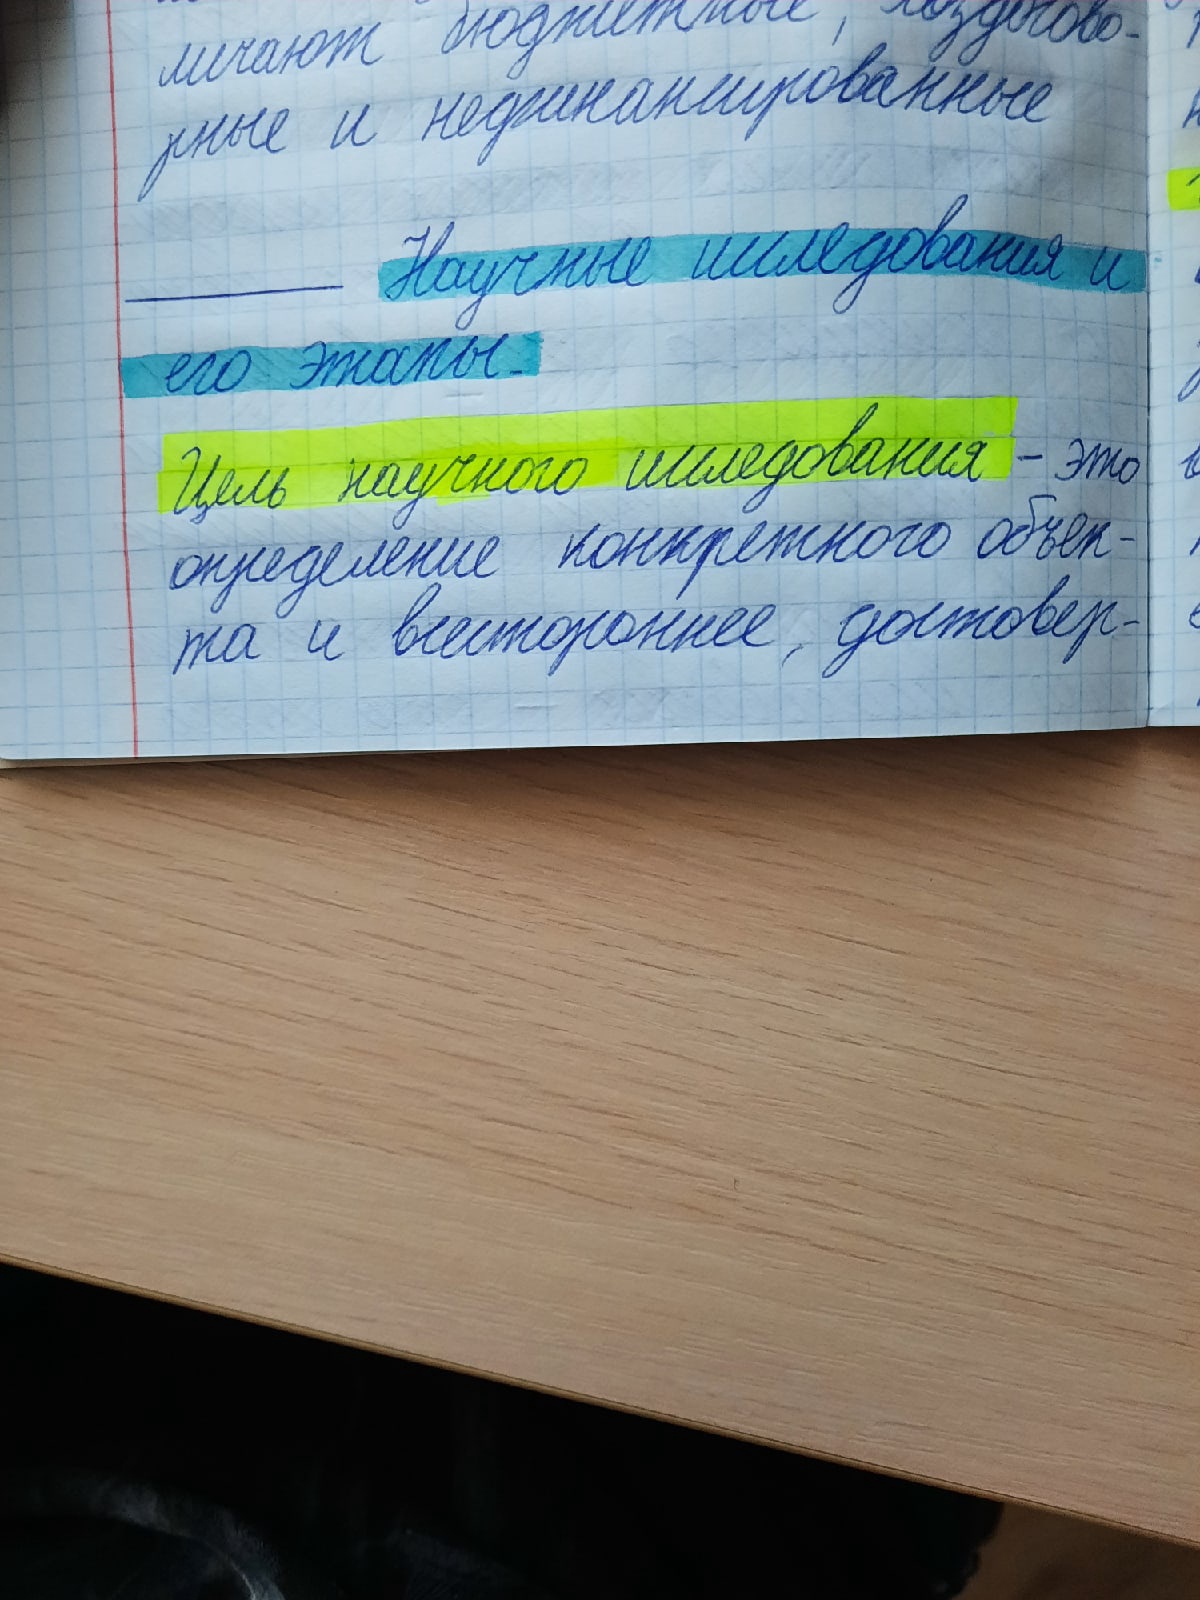 личают бюджетные, хоздогово-
рные и нефинансированные
Научные исследования и
его этапы.
Цель научного исследования - это
определение конкретного объек-
та и всестороннее, достовер-